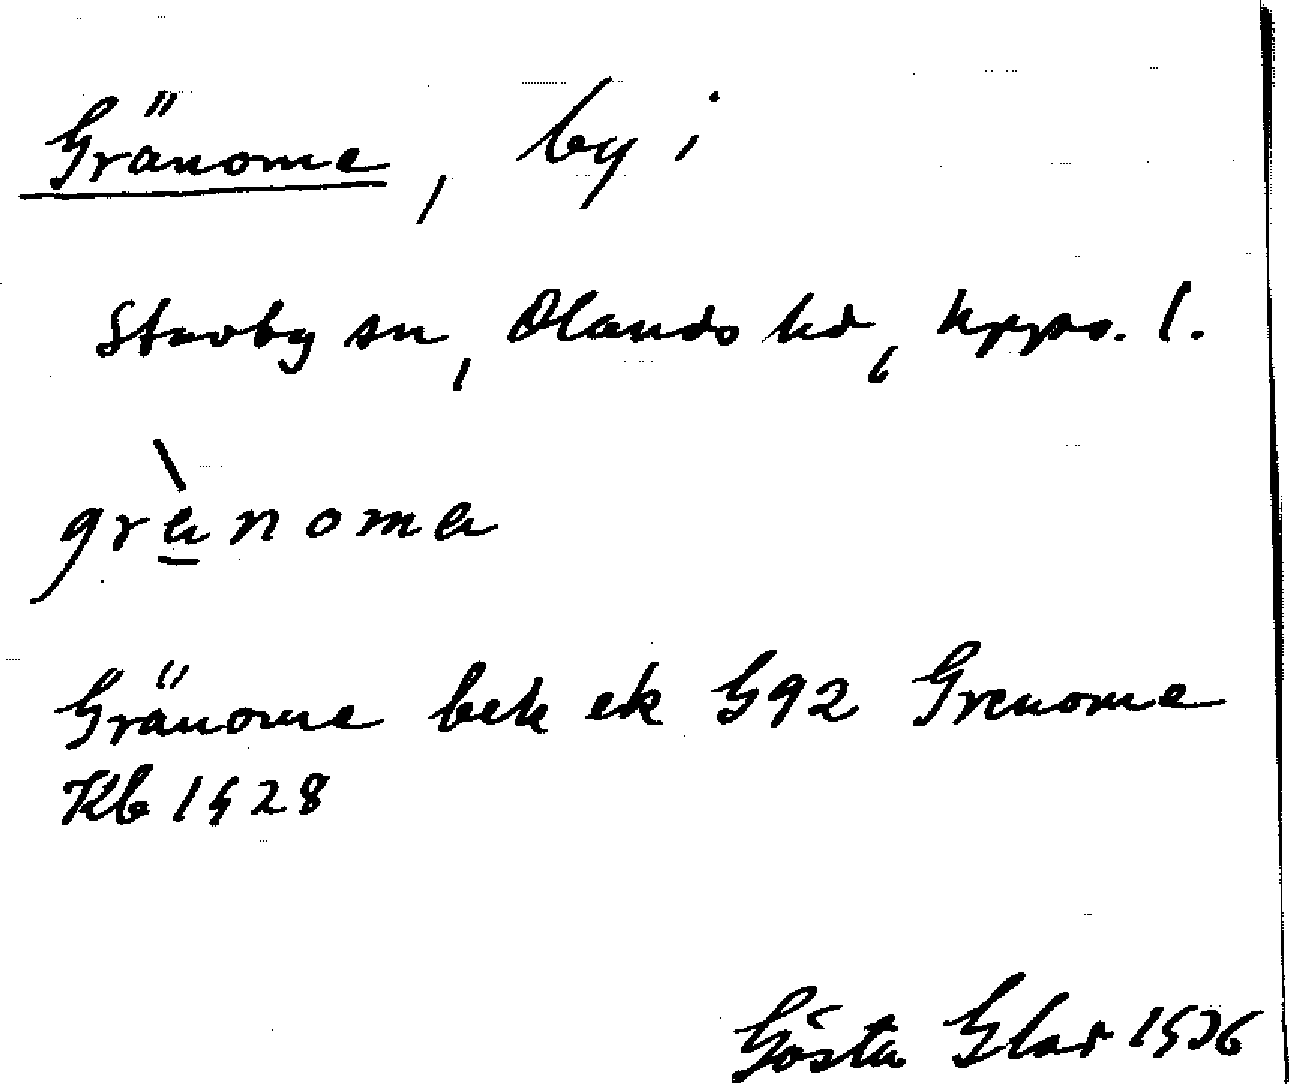 Gränome, by i
Stavby sn, Olands hd, Upps. l.
grànoma
Gränome bek ek G92 Grenome
Kb 1928
Gösta Glar 1936